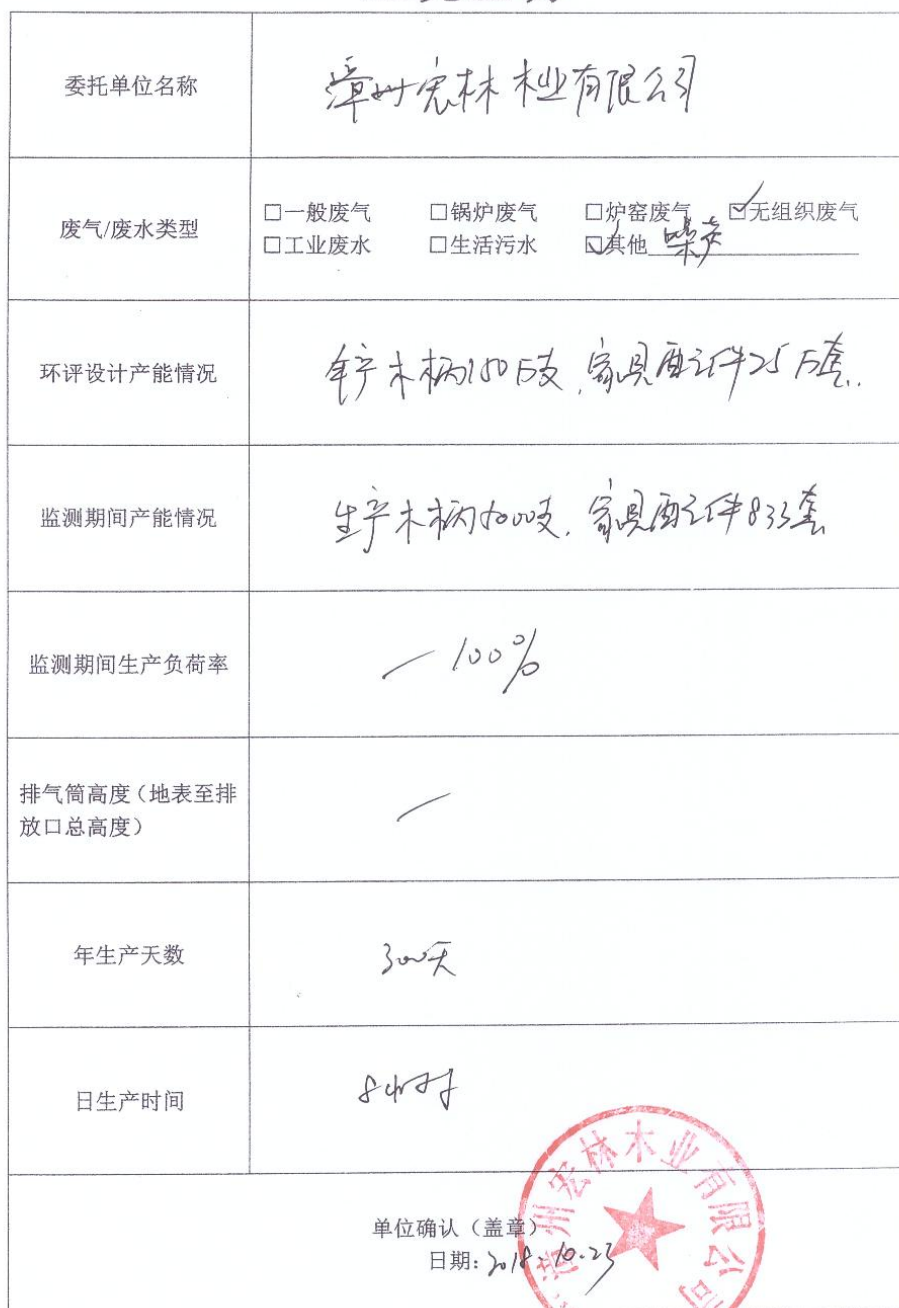 委托单位名称
漳州宏林木业有限公司
废气/废水类型
□一般废气 □锅炉废气 □炉窑废气 ☑无组织废气
□工业废水 □生活污水 ☑其他 噪声
环评设计产能情况
年产木柄150万支、家具配件25万套.
监测期间产能情况
生产木柄5000支、家具配件833套
监测期间生产负荷率
— 100%
排气筒高度（地表至排
放口总高度）
—
年生产天数
300天
日生产时间
8小时
单位确认（盖章）
日期: 2018.10.23
漳州宏林木业有限公司